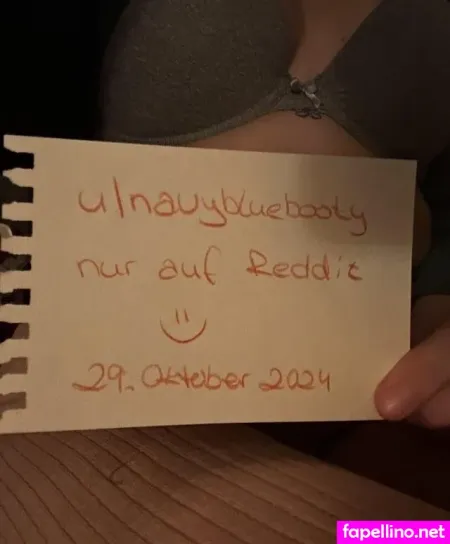 u/navybluebooty
nur auf Reddit
29. Oktober 2024
fapellino.net